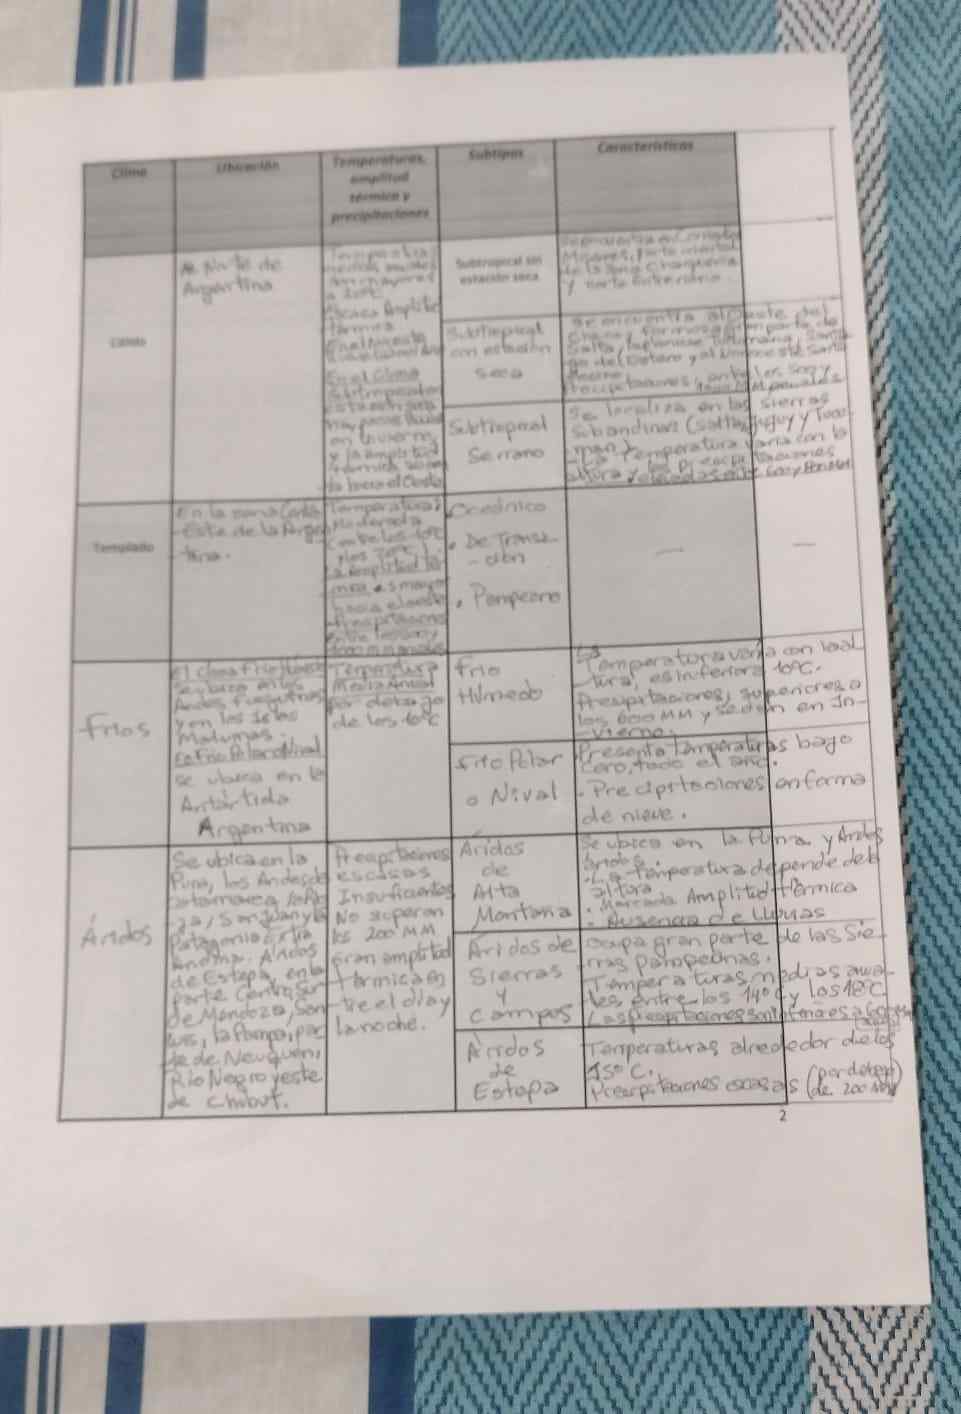 Clima
Ubicación
Temperaturas,
amplitud
térmica y
precipitaciones
Subtipos
Características
Cálido
Norte de
Argentina
Temperaturas
medias anuales
mayores
a 20°C
Escasa Amplitud
térmica
En el Clima
Subtropical con
estación seca
hay pocas lluvias
en invierno
y la amplitud
térmica
hacia el Oeste
Subtropical sin
estación seca
Se encuentra en Corrientes
Misiones, parte oriental
de la zona Chaqueña
y norte entrerriano.
Subtropical
con estación
seca
Se encuentra al Oeste del
Chaco y Formosa, gran parte de
Salta, Tucumana, Santia
go del Estero y al Santa
Precipitaciones, entre los 500 y
1000 MM anuales
Subtropical
Serrano
Se localiza en las sierras
Subandinas (Salta, Jujuy y Tucu
mán).
La Temperatura varía con la
altura y las Precipitaciones
elevadas 600 y 800 MM
Templado
En la zona Centro
-Este de la Argen
tina.
Temperatura
Moderada
entre los 10°C
y los 20°C
La Amplitud tér
mica es mayor
hacia el oeste
Precipitaciones
entre los 500 y
1000 mm anuales
Oceánico
. De Transi-
-ción
. Pampeano
—
—
Fríos
El clima Frío Húmedo
se ubica en los
Andes fueguinos
y en las Islas
Malvinas.
El Frío Polar o Nival
se ubica en la
Antártida
Argentina
Temperatura
Media Anual
por debajo
de los 10°C
Frío
Húmedo
La
Temperatura varía con la al
tura, es inferior a 10°C.
Precipitaciones, superiores a
los 600 MM y se dan en In-
-vierno.
Frío Polar
o Nival
Presenta temperaturas bago
Cero, todo el año.
. Precipitaciones en forma
de nieve.
Áridos
Se ubica en la
Puna, los Andes de
Catamarca, La Rio
ja, San Juan y la
Patagonia Extra
Andina. Áridos
de Estepa, en la
parte Centro Sur
de Mendoza, San
Luis, la Pampa, par
te de Neuquén,
Río Negro y este
de Chubut.
Precipitaciones
escasas
Insuficientes
No superan
los 200 MM
Gran amplitud
térmica en
tre el día y
la noche.
Áridos
de
Alta
Montaña
Se ubica en la Puna y Andes
Áridos.
. La Temperatura depende de la
altura
. Marcada Amplitud térmica
. Ausencia de Lluvias
Áridos de
Sierras
y
Campos
Ocupa gran parte de las Sie-
rras pampeanas.
Temperaturas medias anua-
les entre los 14°C y los 18°C
Las precipitaciones son inferiores a los
Áridos
de
Estepa
Temperaturas alrededor de los
15°C.
Precipitaciones escasas (por debajo
de 200 MM)
2